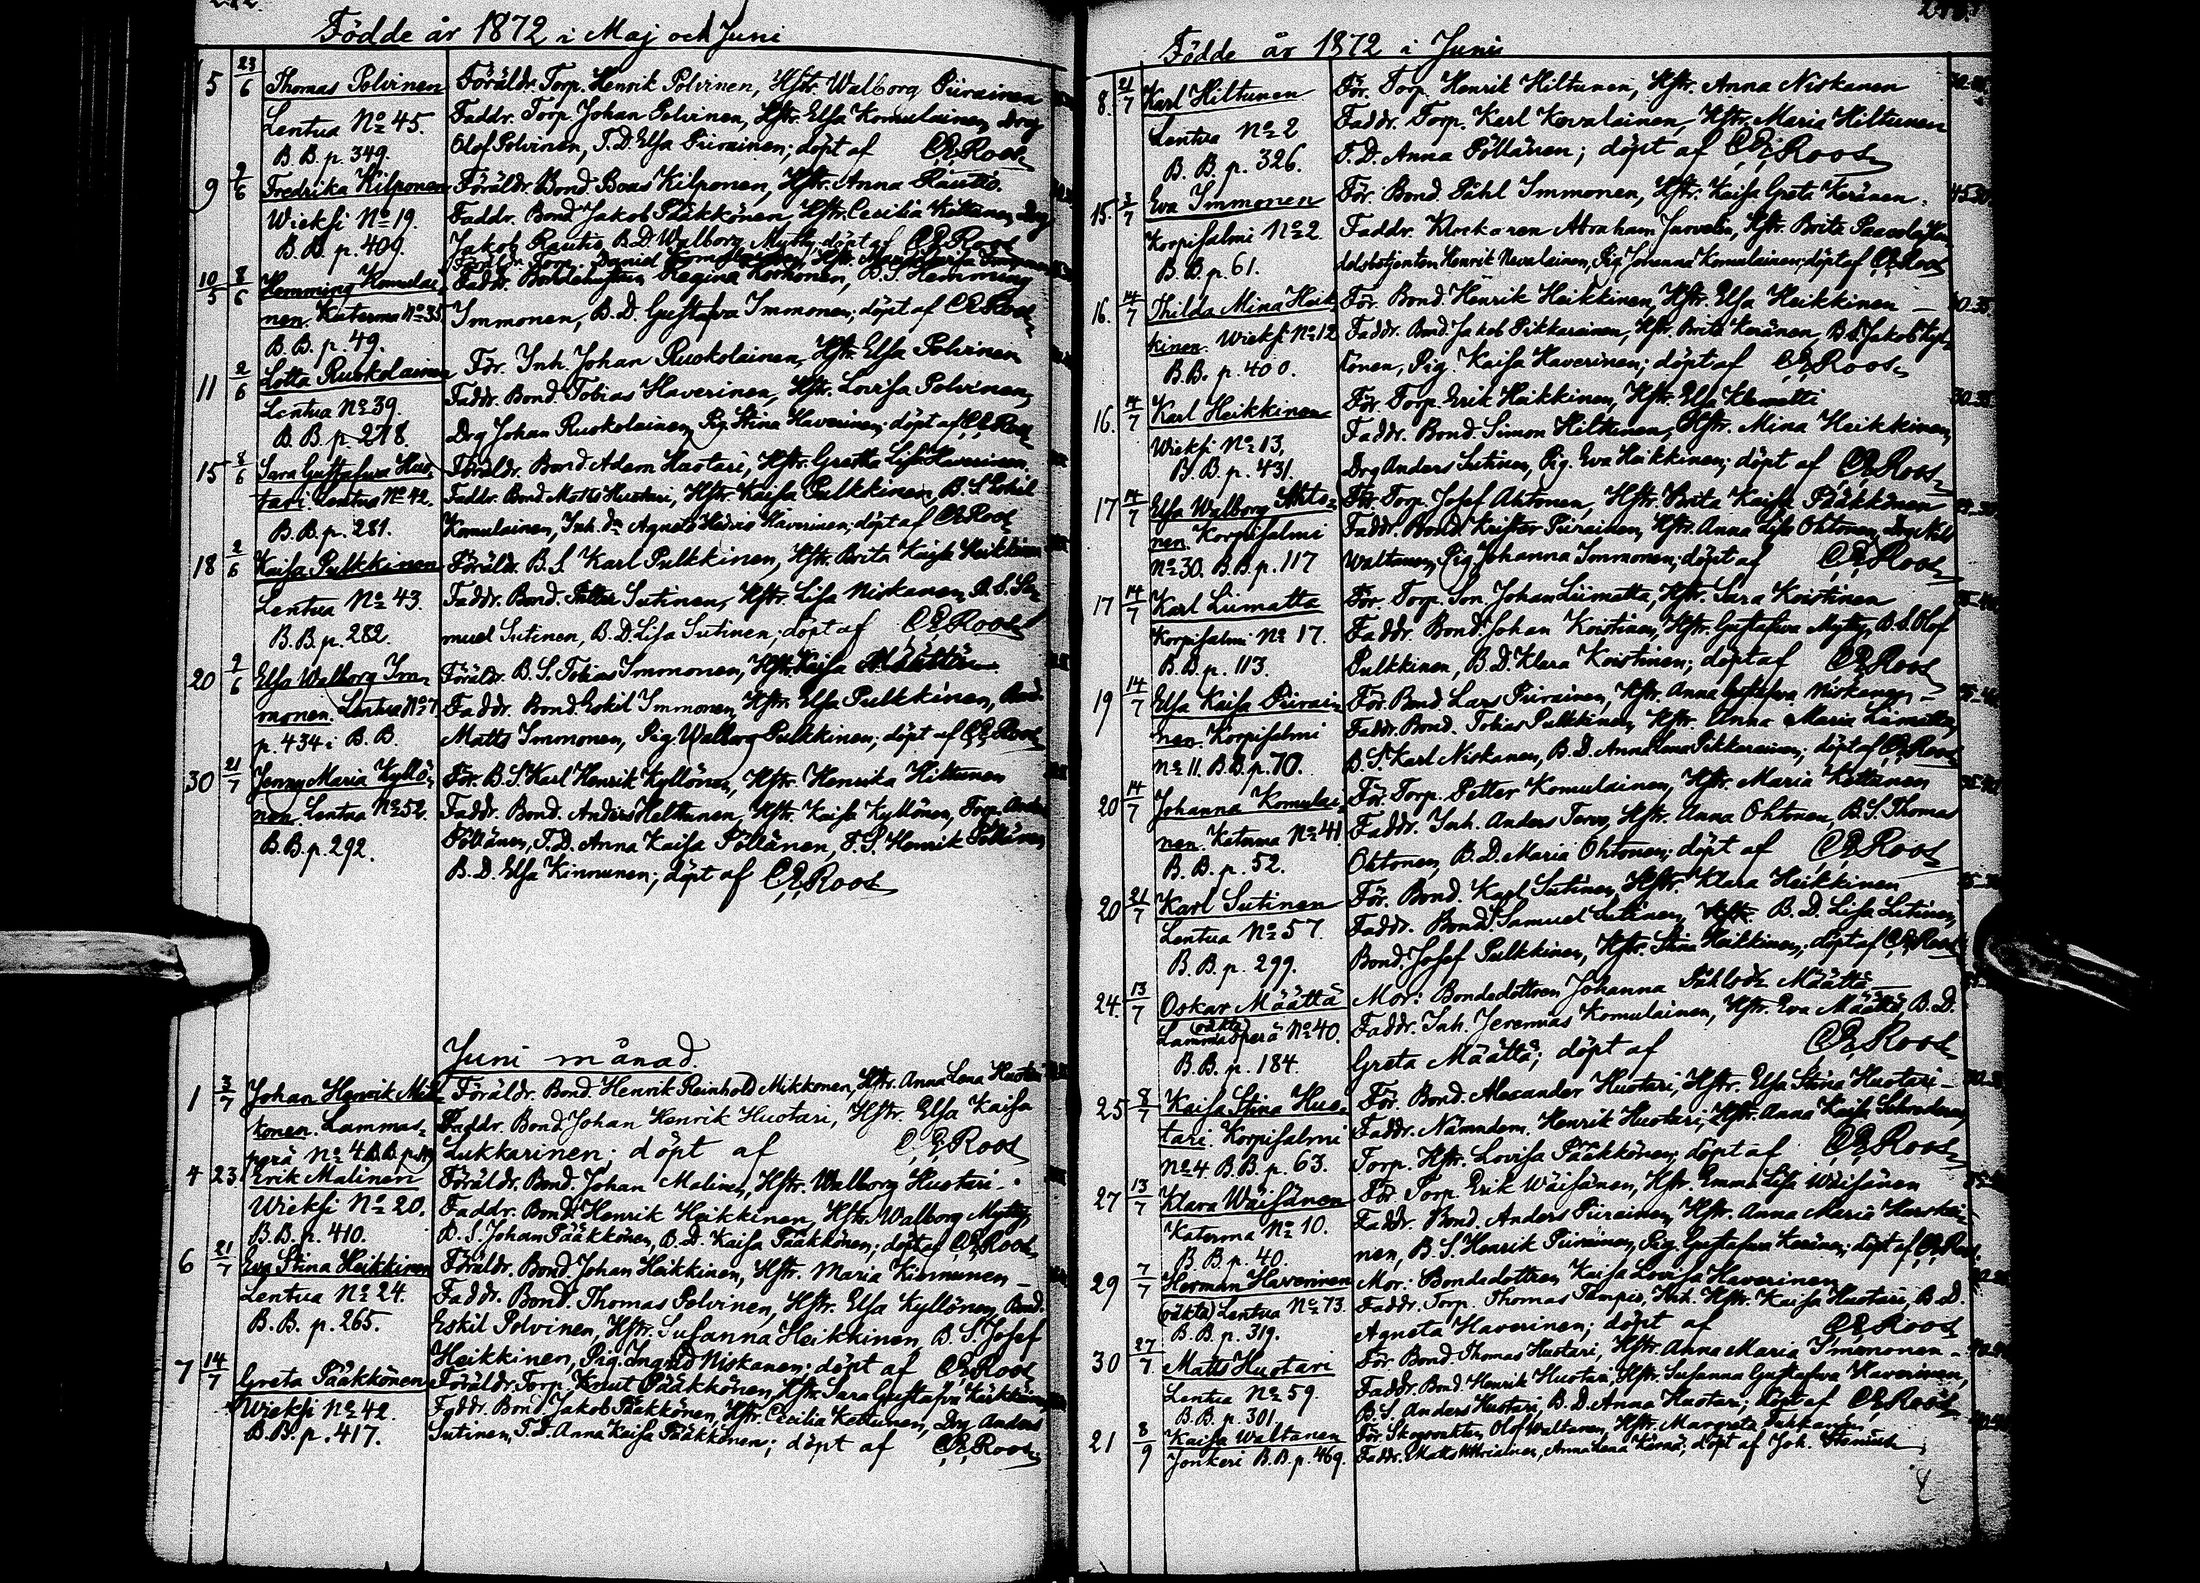 Födde år 1872 i Maj och Juni
5 23/6 Thomas Polvinen Föräldr. Torp. Henrik Polvinen, Hstr. Walborg Piirainen
Lentua No 45. Faddr. Torp. Johan Polvinen, Hstr. Elsa Komulainen, Drg
B.B. p. 349. Olof Polvinen, T.D. Elsa Piirainen; döpt af C.E. Roos
9 2/6 Fredrika Kilponen Föräldr. Bond. Boas Kilponen, Hstr. Anna Rautio.
Wieksi No 19. Faddr. Bond. Jakob Pääkkönen, Hstr. Cecilia Kettunen, Drg
B.B. p. 409. Jakob Rautio, B.D. Walborg Mytty; döpt af C.E. Roos
Föräldr. Torp. Daniel Komulainen, Hstr.
10/5 8/6 Hemming Komulai- Faddr. Regina Korhonen, B.S. Hemming
nen. Katerma No 35 Immonen, B.D. Gustafva Immonen; döpt af C.E. Roos
B.B. p. 49.
11 2/6 Lotta Ruokolainen För. Inh. Johan Ruokolainen, Hstr. Elsa Polvinen
Lentua No 39. Faddr. Bond. Tobias Haverinen, Hstr. Lovisa Polvinen,
B.B. p. 278. Drg Johan Ruokolainen, Pig. Stina Haverinen; döpt af C.E. Roos
15 8/6 Sara Gustafva Huo- Föräldr. Bond. Adam Huotari, Hstr. Gretha Lisa Haverinen.
tari. Lentua No 42. Faddr. Bond. Matts Huotari, Hstr. Kaisa Pulkkinen, B.S. Eskil
B.B. p. 281. Komulainen, Inh. Dr Agneta Hedvig Haverinen; döpt af C.E. Roos
18 2/6 Kaisa Pulkkinen Föräldr. B.S. Karl Pulkkinen, Hstr. Brita Kaisa Heikkinen
Lentua No 43. Faddr. Bond. Petter Sutinen, Hstr. Lisa Niskanen, B.S. Sa-
B.B. p. 282. muel Sutinen, B.D. Lisa Sutinen; döpt af C.E. Roos
20 2/6 Elsa Walborg Im- Föräldr. B.S. Tobias Immonen, Hstr. Kaisa
monen. Lentua No 7. Faddr. Bond. Eskil Immonen, Hstr. Elsa Pulkkinen, Bond.
p. 434 i B.B. Matts Immonen, Pig. Walborg Pulkkinen; döpt af C.E. Roos
30 21/7 Jenny Maria Kyllö- För. B.S. Karl Henrik Kyllönen, Hstr. Henrika Hiltunen
nen. Lentua No 52. Faddr. Bond. Anders Heltunen, Hstr. Kaisa Kyllönen, Torp. Anders
B.B. p. 292. Pöllänen, T.D. Anna Kaisa Pöllänen, T.S. Henrik Pöllänen,
B.D. Elsa Kinnunen; döpt af C.E. Roos
Juni månad.
1 3/7 Johan Henrik Mik- Föräldr. Bond. Henrik Reinhold Mikkonen, Hstr. Anna Lena Huotari
konen. Lammas- Faddr. Bond. Johan Henrik Huotari, Hstr. Elsa Kaisa
perä No 4. B.B. p. Lukkarinen; döpt af C.E. Roos
4 23 Erik Malinen Föräldr. Bond. Johan Malinen, Hstr. Walborg Huotari.
Wieksi No 20. Faddr. Bond. Henrik Heikkinen, Hstr. Walborg Mytty,
B.B. p. 410. B.S. Johan Pääkkönen, B.D. Kaisa Pääkkönen; döpt af C.E. Roos
6 21/7 Eva Stina Heikkinen Föräldr. Bond. Johan Heikkinen, Hstr. Maria Kinnunen
Lentua No 24. Faddr. Bond. Thomas Polvinen, Hstr. Elsa Kyllönen, Bond.
B.B. p. 265. Eskil Polvinen, Hstr. Susanna Heikkinen, B.S. Josef
Heikkinen, Pig. Ingrid Niskanen; döpt af C.E. Roos
7 14/7 Greta Pääkkönen Föräldr. Torp. Knut Pääkkönen, Hstr. Sara Gustafva
Wieksi No 42. Faddr. Bond. Jakob Pääkkönen, Hstr. Cecilia Kettunen, Drg Anders
B.B. p. 417. Sutinen, T.D. Anna Kaisa Pääkkönen; döpt af C.E. Roos
Födde år 1872 i Juni
8. 21/7 Karl Hiltunen För. Torp. Henrik Hiltunen, Hstr. Anna Niskanen
Lentua No 2 Faddr. Torp. Karl Kovalainen, Hstr. Maria Hiltunen
B.B. p. 326. T.D. Anna Pöllänen; döpt af C.E. Roos
15. 3/7 Eva Immonen För. Bond. Påhl Immonen, Hstr. Kaisa Greta Keränen. 45-50
Korpisalmi No 2. Faddr. Klockaren Abraham Juvelin, Hstr. Brita Paasola, Han-
B.B. p. 61. delsbetjenten Henrik Nevalainen, Pig. Johanna Komulainen; döpt af C.E. Roos
16. 14/7 Thilda Mina Heik- För. Bond. Henrik Heikkinen, Hstr. Elsa Heikkinen
kinen. Wieksi No 12 Faddr. Bond. Jakob Pikkarainen, Hstr. Brita Keränen, B.S. Jakob Kyl-
B.B. p. 400. lönen, Pig. Kaisa Haverinen; döpt af C.E. Roos
16. 14/7 Karl Heikkinen För. Torp. Erik Heikkinen, Hstr. Elsa Klemetti
Wieksi No 13. Faddr. Bond. Simon Hiltunen, Hstr. Mina Heikkinen,
B.B. p. 431. Drg Anders Sutinen, Pig. Eva Heikkinen; döpt af C.E. Roos
17 14/7 Elsa Walborg Ahto- För. Torp. Josef Ahtonen, Hstr. Brita Kaisa Pääkkönen
nen. Korpisalmi Faddr. Bond. Krister Piirainen, Hstr. Anna Lisa Ohtonen, Drg
No 30. B.B. p. 117 Waltanen, Pig. Johanna Immonen; döpt af C.E. Roos
17 14/7 Karl Liimatta För. Torp. Son Johan Liimatta, Hstr. Sara Koistinen
Korpisalmi No 17. Faddr. Bond. Johan Koistinen, Hstr. Gustafva Mytty, B.S. Olof
B.B. p. 113. Pulkkinen, B.D. Klara Koistinen; döpt af C.E. Roos
19 14/7 Elsa Kaisa Piirai- För. Bond Lars Piirainen, Hstr. Anna Gustafva Niskanen
nen. Korpisalmi Faddr. Bond. Tobias Pulkkinen, Hstr. Anna Maria Liimatta,
No 11. B.B. p. 70. B.S. Karl Niskanen, B.D. Anna Lena Pikkarainen; döpt af C.E. Roos
20 14/7 Johanna Komulai- För. Torp. Petter Komulainen, Hstr. Maria Kettunen
nen. Katerma No 41. Faddr. Inh. Anders Tervo, Hstr. Anna Ohtonen, B.S. Thomas
B.B. p. 52. Ohtonen, B.D. Maria Ohtonen; döpt af C.E. Roos
20 21/7 Karl Sutinen För. Bond. Karl Sutinen, Hstr. Klara Heikkinen
Lentua No 57. Faddr. Bond. Samuel Sutinen, B.D. Lisa Sutinen,
B.B. p. 299. Bond. Josef Pulkkinen, Hstr. Stina Heikkinen; döpt af C.E. Roos
24. 13/7 Oskar Määttä Mor: Bondedottren Johanna Määttä
(oäkta) Lammasperä No 40. Faddr. Inh. Jeremias Komulainen, Hstr. Eva Määttä, B.D.
B.B. p. 184. Greta Määttä; döpt af C.E. Roos
25 8/7 Kaisa Stina Huo- För. Bond. Alexander Huotari, Hstr. Elsa Stina Huotari
tari. Korpisalmi Faddr. Nämndem. Henrik Huotari, Hstr. Anna Kaisa Schroderus,
No 4 B.B. p. 63. Torp. Hstr. Lovisa Pääkkönen; döpt af C.E. Roos
27 13/7 Klara Wäisänen För. Torp. Erik Wäisänen, Hstr. Emma Lisa Wäisänen
Katerma No 10. Faddr. Bond. Anders Piirainen, Hstr. Anna Maria Hurskai-
B.B. p. 40. nen, B.S. Henrik Piirainen, Pig. Gustafva Keränen; döpt af C.E. Roos
29 7/7 Herman Haverinen Mor: Bondedottren Kaisa Lovisa Haverinen
(oäkta) Lentua No 73. Faddr. Torp. Thomas Hstr. Kaisa Huotari, B.D.
B.B. p. 319. Agneta Haverinen; döpt af C.E. Roos
30 27/7. Matts Huotari För. Bond. Thomas Huotari, Hstr. Anna Maria Immonen
Lentua No 59. Faddr. Bond. Henrik Huotari, Hstr. Susanna Gustafva Haverinen,
B.B. p. 301. B.S. Anders Huotari, B.D. Anna Huotari; döpt af C.E. Roos
21 8/9 Kaisa Waltanen För. Skogvakten Olof Waltanen, Hstr. Margreta
Jonkeri B.B. p. 469. Faddr. Matts Anna Lena döpt af Joh. Stenius